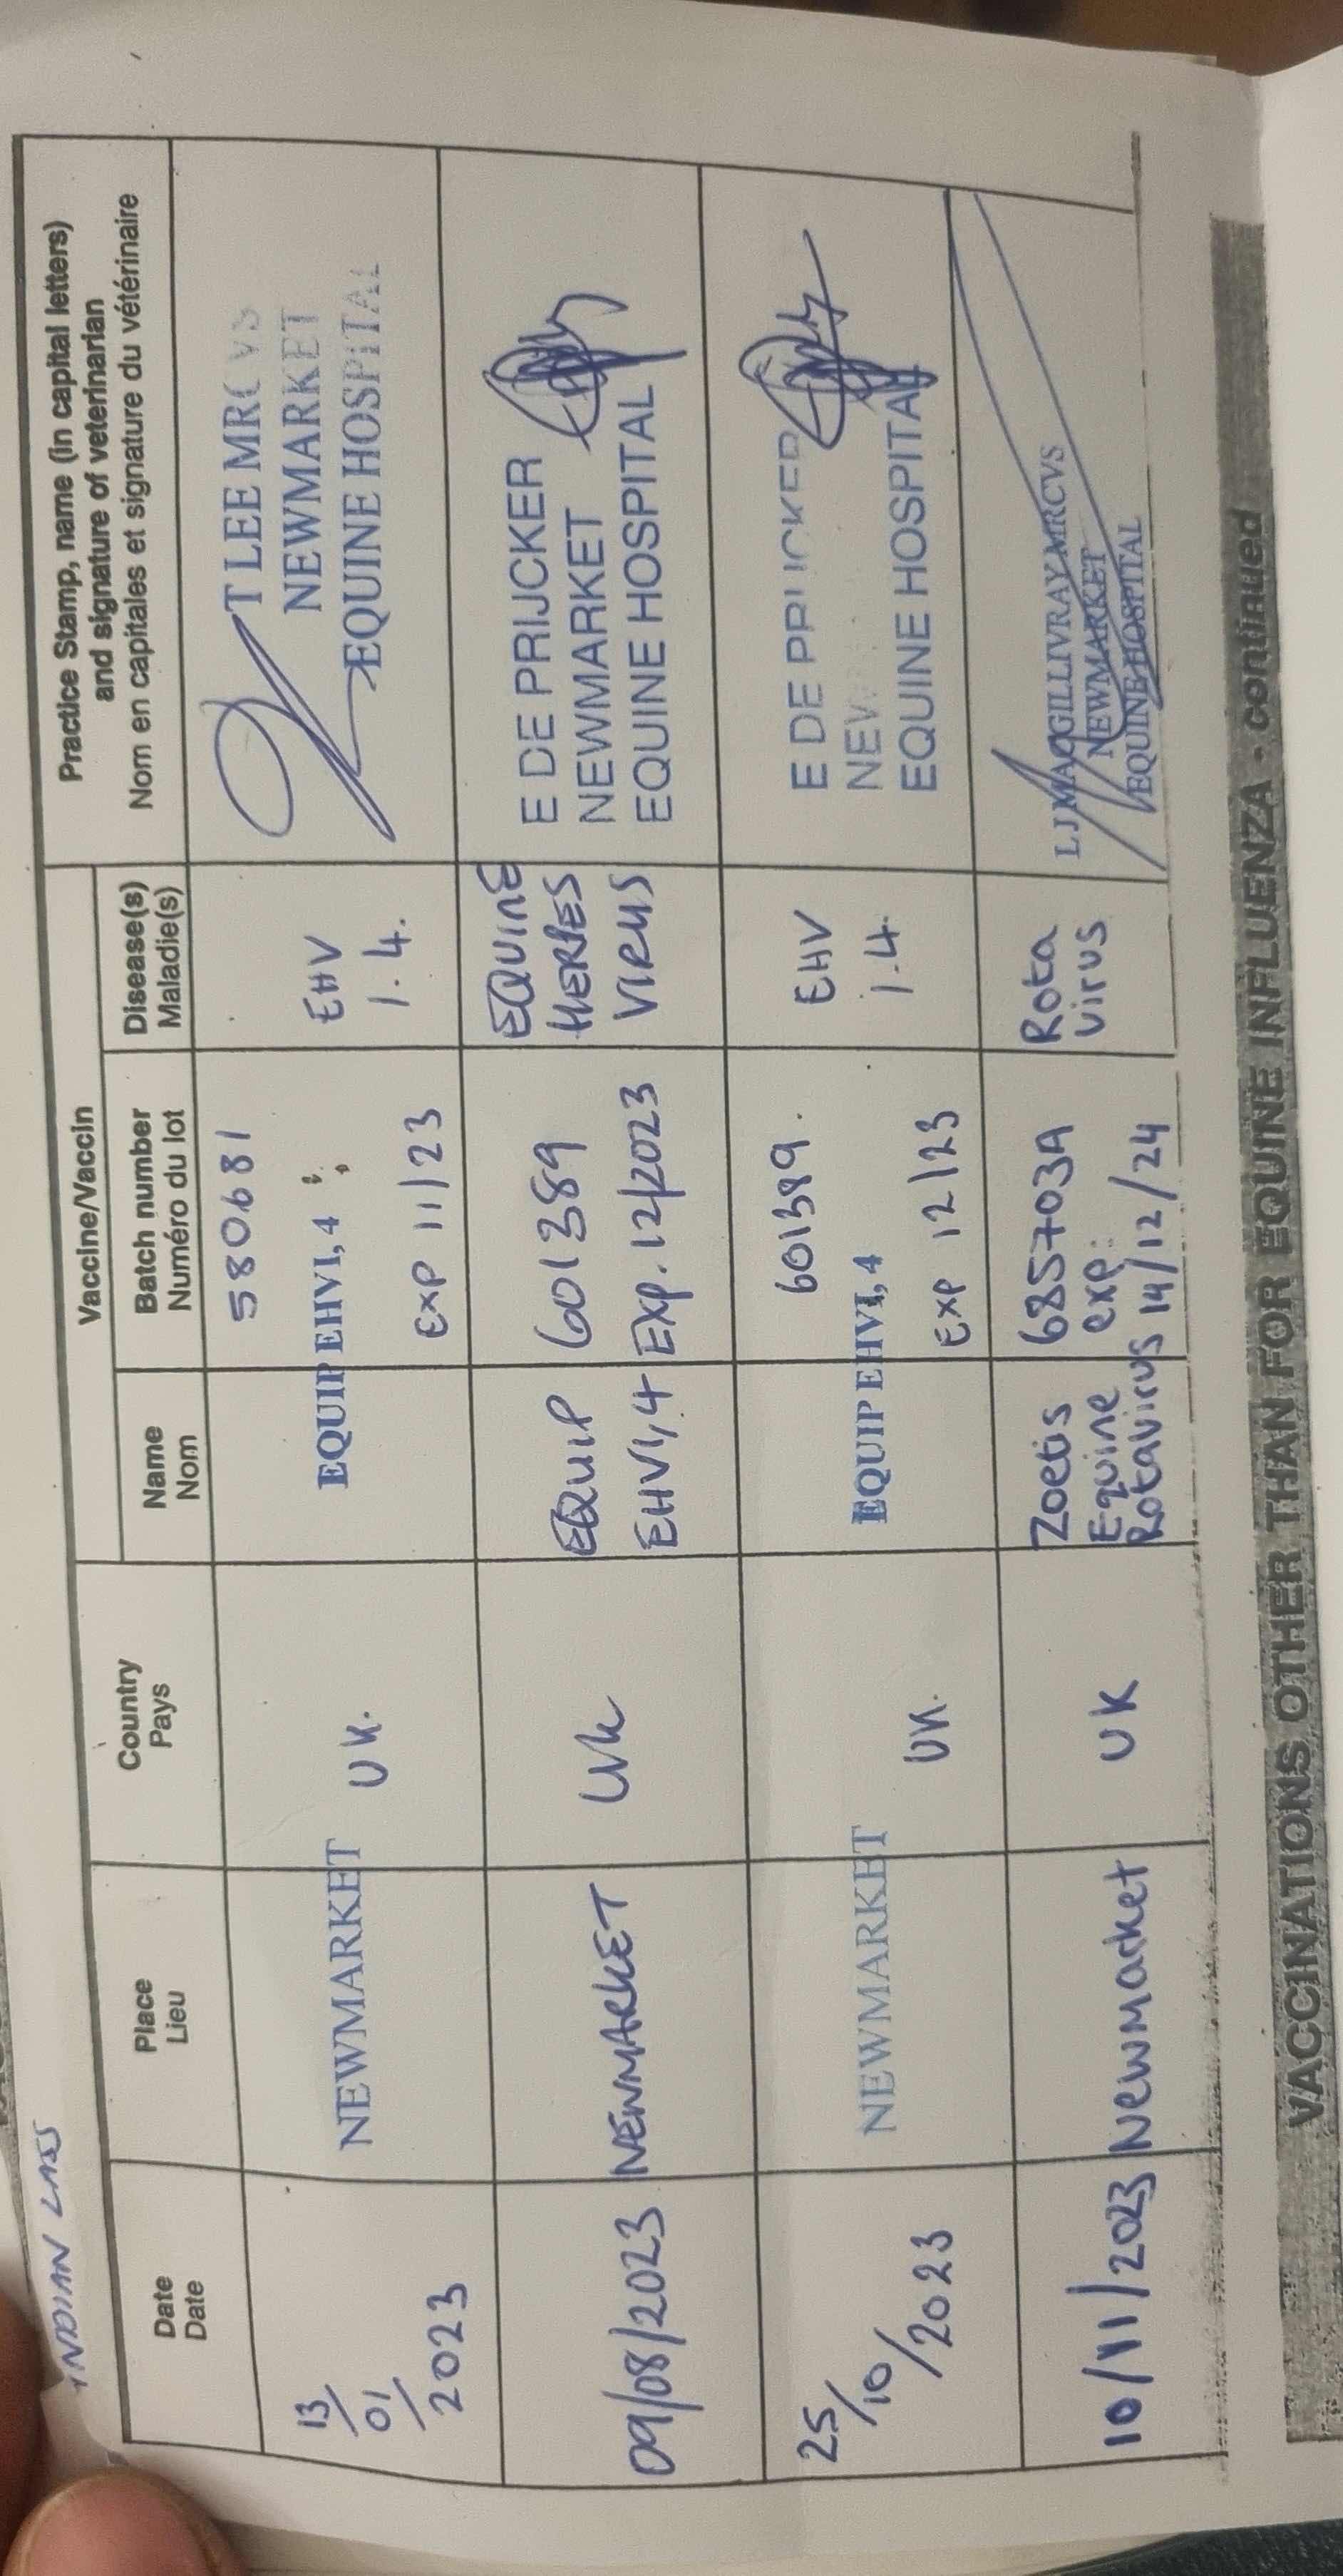 INDIAN LASS
Date
Date
Place
Lieu
Country
Pays
Vaccine/Vaccin
Name
Nom
Batch number
Numéro du lot
Disease(s)
Maladie(s)
Practice Stamp, name (in capital letters)
and signature of veterinarian
Nom en capitales et signature du vétérinaire
13/
01/
2023
NEWMARKET
UK.
580681
EQUIP EHV1, 4
EXP 11/23
EHV
1.4.
T LEE MRCVS
NEWMARKET
EQUINE HOSPITAL
09/08/2023
NEWMARKET
UK
EQUIP
EHV1,4
601389
EXP.12/2023
EQUINE
HERPES
VIRUS
E DE PRIJCKER
NEWMARKET
EQUINE HOSPITAL
25/
10/
2023
NEWMARKET
UK.
601389.
EQUIP EHV1, 4
EXP 12/23
EHV
1.4
E DE PRIJCKER
EQUINE HOSPITAL
10/11/2023
Newmarket
UK
Zoetis
Equine
Rotavirus
685703A
exp:
14/12/24
Rota
virus
L J MACGILLIVRAY MRCVS
NEWMARKET
EQUINE HOSPITAL
VACCINATIONS OTHER THAN FOR EQUINE INFLUENZA - continued